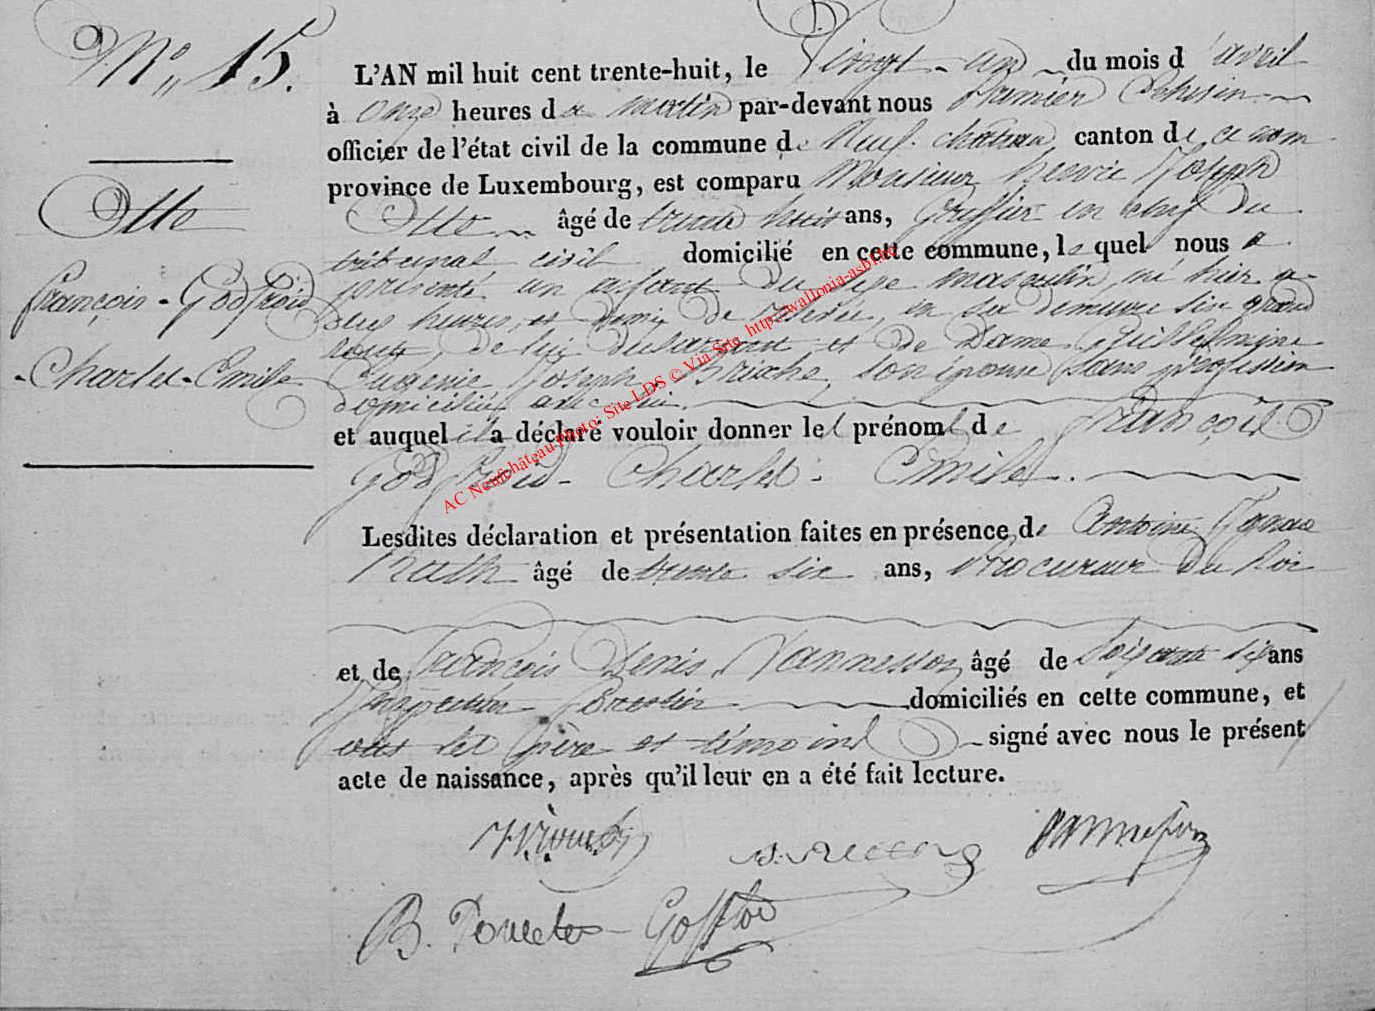 N° 15.
Otto
François-Godfroid
-Charles-Emile
L'AN mil huit cent trente-huit, le Vingt-un du mois d'avril
à onze heures du matin par-devant nous premier Echevin
officier de l'état civil de la commune de Neuf-château canton de ce nom
province de Luxembourg, est comparu Monsieur Henri Joseph
Otto âgé de trente huit ans, Greffier en chef du
tribunal civil domicilié en cette commune, lequel nous a
présenté un enfant du sexe masculin, né hier a
heures et demie de en sa demeure sin grand
route de lui déclarant et de Dame Guillelmine
Eugenie Joseph son épouse sans profession
domiciliée avec lui.
et auquel il a déclaré vouloir donner les prénoms de François
Godfroid-Charles-Emile.
Lesdites déclaration et présentation faites en présence de Antoine Ignace
âgé de trente six ans, Procureur du Roi
et de François Denis Vannesson âgé de Soixante six ans
Inspecteur forestier domiciliés en cette commune, et
ont les père et témoins signé avec nous le présent
acte de naissance, après qu'il leur en a été fait lecture.
AC Neufchâteau Photo: Site LDS © Via Site http://wallonia-asbl.be